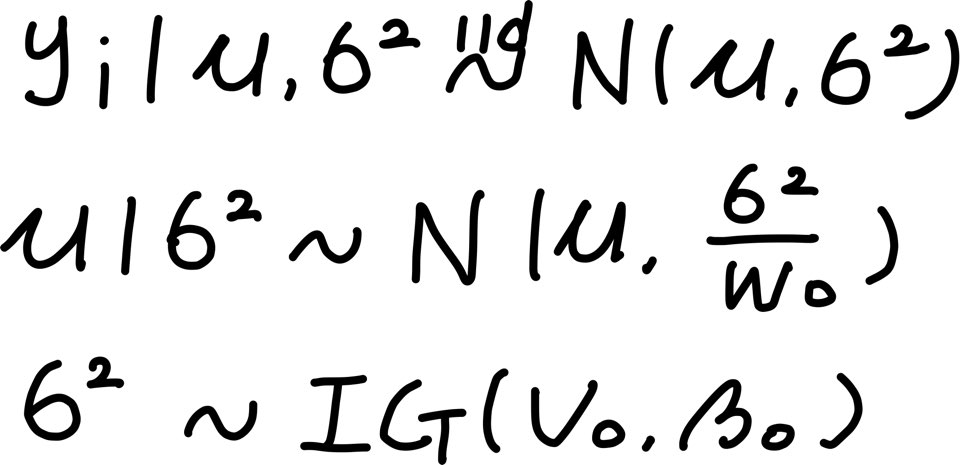 y_i | μ, σ² iid ~ N(μ, σ²)
μ | σ² ~ N(μ, σ²/w₀)
σ² ~ IG(ν₀, β₀)